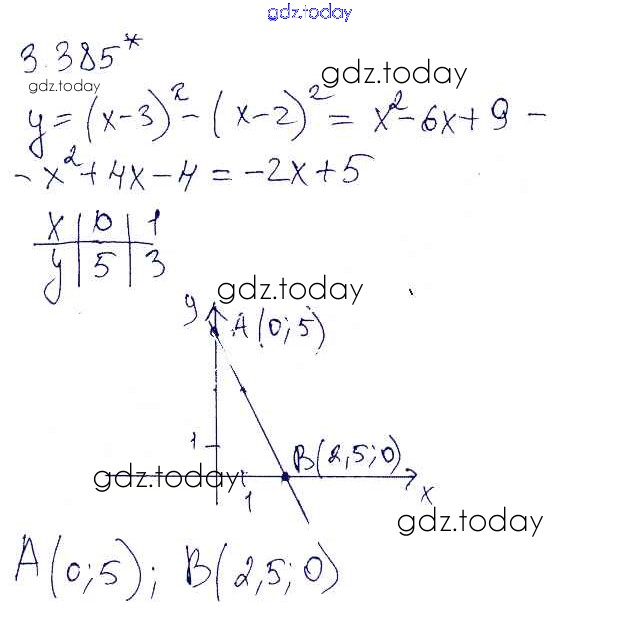 gdz.today
3.385*
gdz.today
gdz.today
y = (x-3)² - (x-2)² = x² - 6x + 9 -
- x² + 4x - 4 = -2x + 5
x | 0 | 1
y | 5 | 3
gdz.today
y A(0;5)
1 B(2,5;0)
gdz.today
1 x
gdz.today
A(0;5); B(2,5;0)